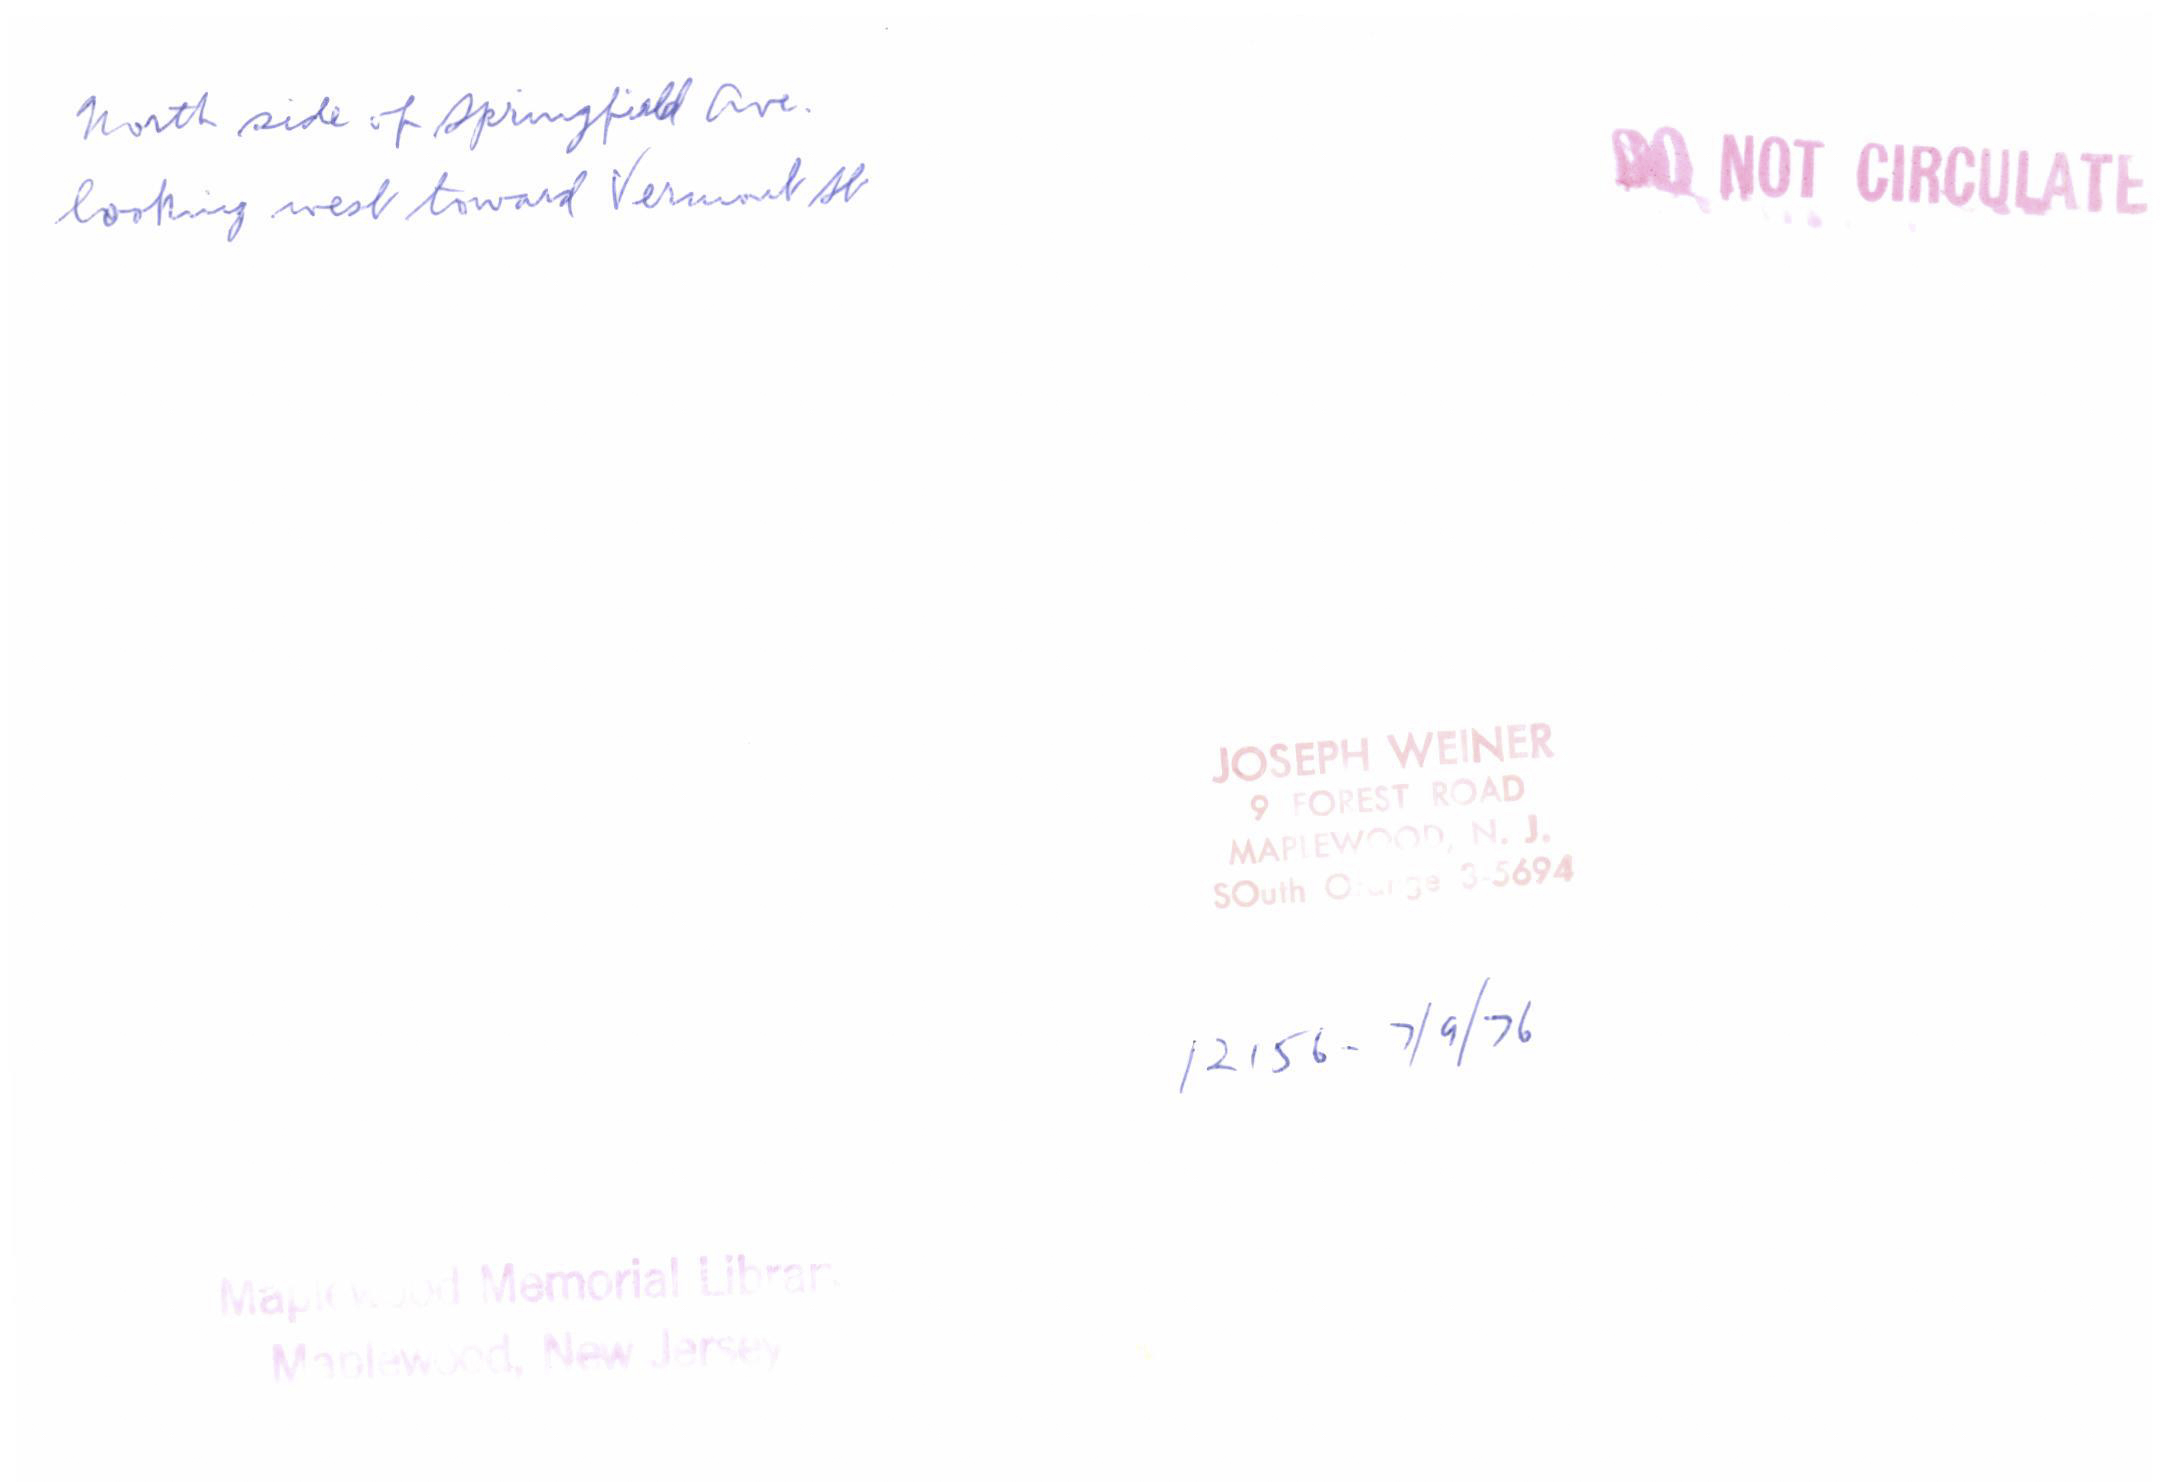 North side of Springfield Ave.
looking west toward Vermont St
DO NOT CIRCULATE
JOSEPH WEINER
9 FOREST ROAD
MAPLEWOOD, N. J.
SOuth Orange 3-5694
12156- 7/9/76
Maplewood Memorial Library
Maplewood, New Jersey